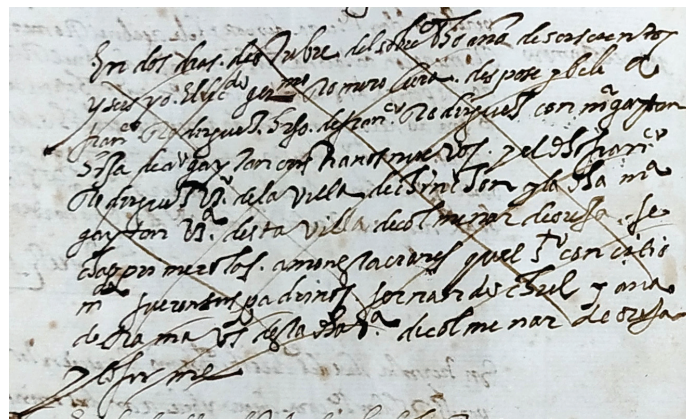 En dos dias de otubre del sobre dho año de seiscientos
y seis yo el licdo germo Romero cura desposé y velé a
franco Rodriguez hijo de franco Rodriguez con ma gayton
hija de ao gayton contrayentes y el dho franco
Rodriguez vo de la villa de chinchon y la dha ma
gayton va desta villa de colmenar de oreja
primero las amonestaciones quel sto concilio
mda fueron sus padrinos fernando y ana
de vos desta dha va de colmenar de oreja
y lo firme